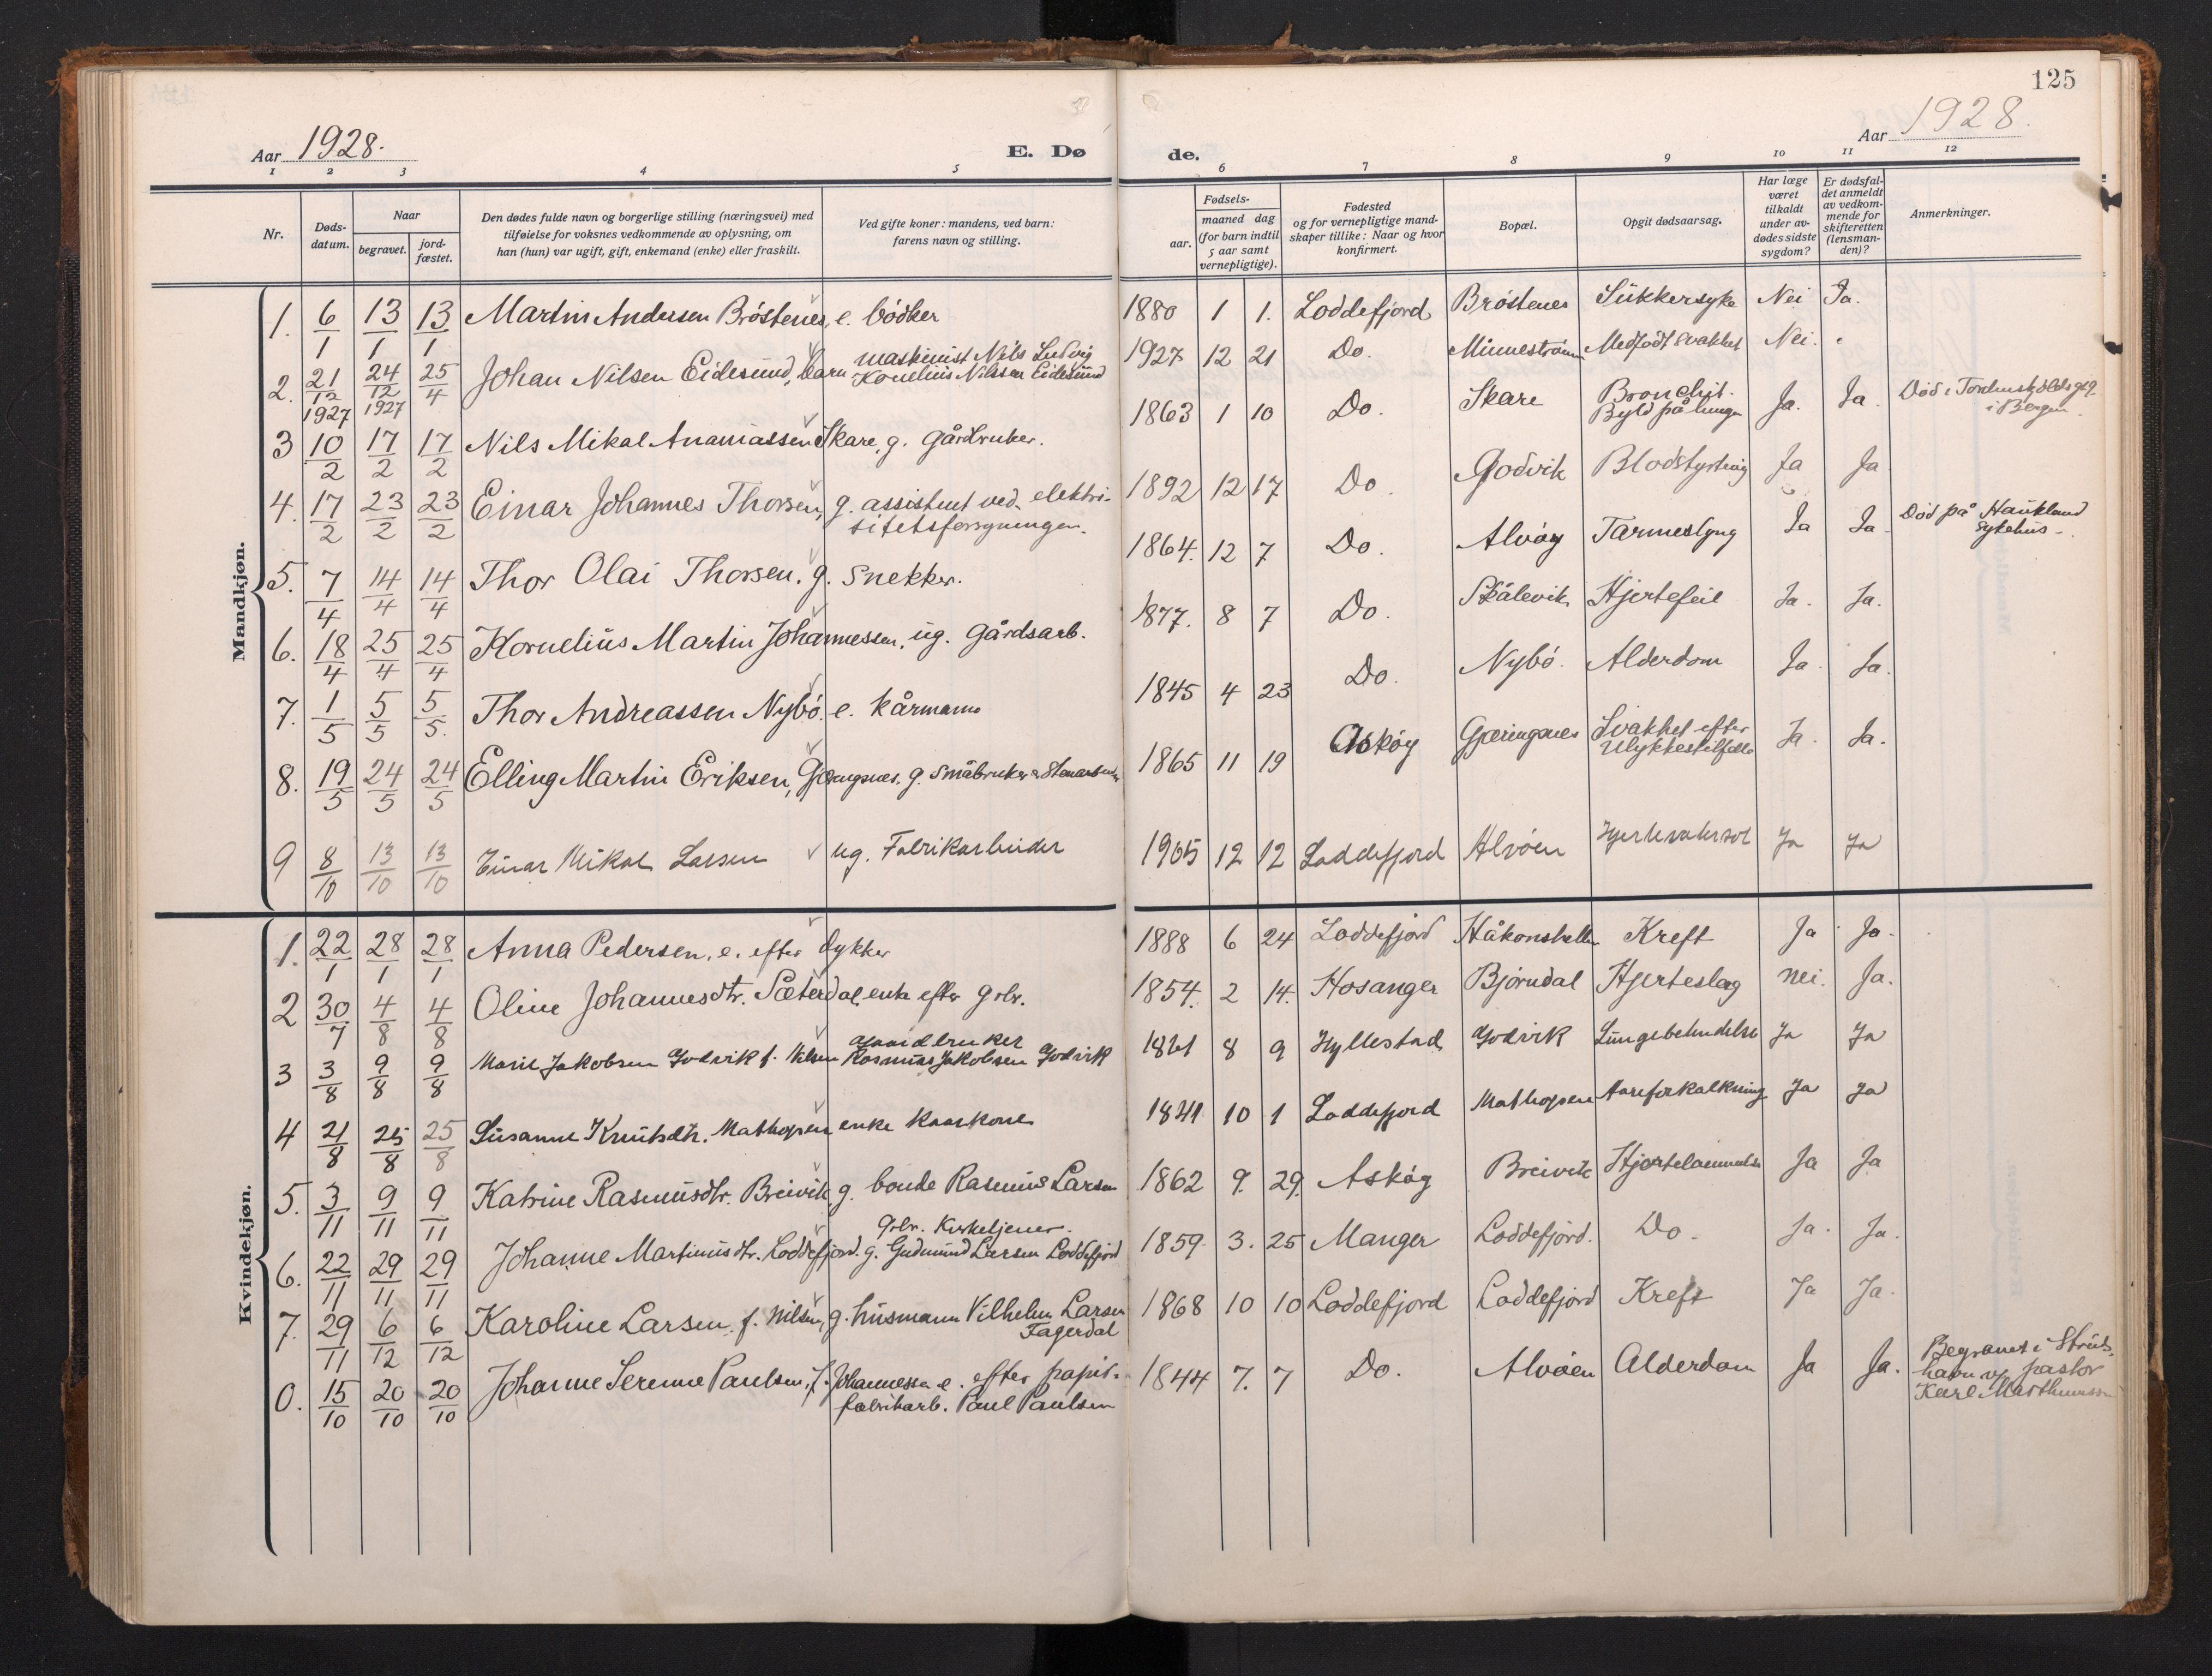 125
Aar 1928.
E. Dø
de.
Aar 1928.
1 2 3 4 5 6 7 8 9 10 11 12
Nr.
Døds-
datum.
Naar
begravet.
jord-
fæstet.
Den dødes fulde navn og borgerlige stilling (næringsvei) med
tilføielse for voksnes vedkommende av oplysning, om
han (hun) var ugift, gift, enkemand (enke) eller fraskilt.
Ved gifte koner: mandens, ved barn:
farens navn og stilling.
Fødsels-
aar.
maaned dag
(for barn indtil
5 aar samt
vernepligtige).
Fødested
og for vernepligtige mand-
skaper tillike: Naar og hvor
konfirmert.
Bopæl.
Opgit dødsaarsag.
Har læge
været
tilkaldt
under av-
dødes sidste
sygdom?
Er dødsfal-
det anmeldt
av vedkom-
mende for
skifteretten
(lensman-
den)?
Anmerkninger.
Mandkjøn.
1. 6/1 13/1 13/1 Martin Andersen Bröstenes, e. bödker 1880 1 1. Loddefjord Bröstenes Sukkersyke Nei Ja.
2. 21/12 1927 24/12 1927 25/4 Johan Nilsen Eidesund, barn maskinist Nils Ludvig
Kornelius Nilssen Eidesund 1927 12 21 Do. Minnestrøm Medfødt svakhet Nei.
3 10/2 17/2 17/2 Nils Mikal Ananiassen Skare, g. gårdbruker. 1863 1 10 Do. Skare Bronchit.
Byld på lungen Ja. Ja. Död i Tordenskjoldsgt 9
i Bergen.
4. 17/2 23/2 23/2 Einar Johannes Thorsen, g. assistent ved elektri-
sitetsforsyningen. 1892 12 17 Do. Godvik Blodstyrtning Ja Ja
5. 7/4 14/4 14/4 Thor Olai Thorsen. g. Snekker. 1864. 12 7 Do. Alvöy Tarmeslyng Ja Ja Död på Haukland
sykehus.
6. 18/4 25/4 25/4 Kornelius Martin Johannessen, ug. Gårdsarb. 1877. 8 7 Do. Skålevik Hjertefeil Ja. Ja.
7. 1/5 5/5 5/5. Thor Andreassen Nybö. e. kårmann 1845 4 23 Do. Nybö. Alderdom Ja. Ja.
8. 19/5 24/5 24/5 Elling Martin Eriksen, Gjæringsnes. g. Småbruker & Stenarbeider 1865 11 19 Askøy Gjæringsnes Svakhet efter
Ulykkestilfelle Ja. Ja.
9 8/10 13/10 13/10 Einar Mikal Larsen ug. Fabrikarbeider 1905 12 12 Loddefjord Alvöen Ja Ja
Kvindekjøn.
1. 22/1 28/1 28/1 Anna Pedersen, e. efter dykker 1888 6 24 Loddefjord Håkonshella Kreft Ja Ja.
2 30/7 4/8 4/8 Oline Johannesdtr. Sæterdal, enke efter grbr. 1854. 2 14. Hosanger Björndal Hjerteslag nei. Ja.
3 3/8 9/8 9/8 Marie Jakobsen Godvik f. Nilsen gaardbruker
Rasmus Jakobsen Godvik 8 9 Hyllestad Godvik Lungebetendelse Ja Ja
4 21/8 25/8 25/8 Susanne Knutsdtr. Mathopen enke kaarkone 1841 10 1 Loddefjord Mathopen Aareforkalkning Ja Ja
5. 3/11 9/11 9/11 Katrine Rasmusdtr. Breivik, g. bonde Rasmus Larsen 1862 9. 29. Askøy Breivik Hjertelammelse Ja Ja
6. 22/11 29/11 29/11 Johanne Martinusdtr. Loddefjord. g. Grbr. Kirketjener.
Gudmund Larsen Loddefjord 1859. 3. 25 Manger Loddefjord. Do. Ja. Ja.
7. 29/11 6/12 6/12 Karoline Larsen f. Nilsen, g. husmann Vilhelm Larsen
Fagerdal 1868 10 10 Loddefjord Loddefjord Kreft Ja Ja.
0. 15/10 20/10 20/10 Johanne Serenne Paulsen, f. Johannessen e. efter papir-
fabrikarb. Paul Paulsen 1844 7. 7 Do. Alvöen Alderdom Ja Ja. Begravet i Strus-
havn v/ pastor
Karl Marthinussen